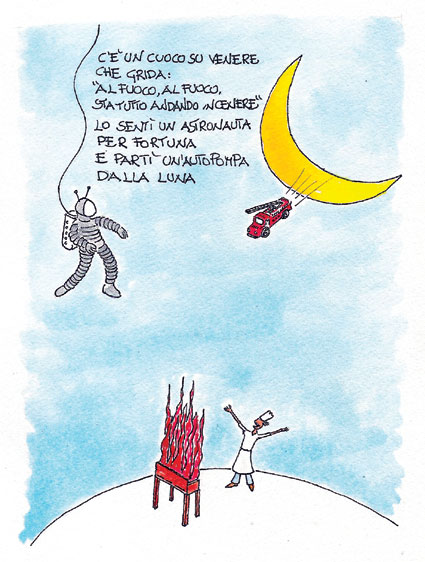 C'È UN CUOCO SU VENERE
CHE GRIDA:
"AL FUOCO, AL FUOCO,
STA TUTTO ANDANDO IN CENERE"
LO SENTÌ UN ASTRONAUTA
PER FORTUNA
E PARTÌ UN'AUTOPOMPA
DALLA LUNA